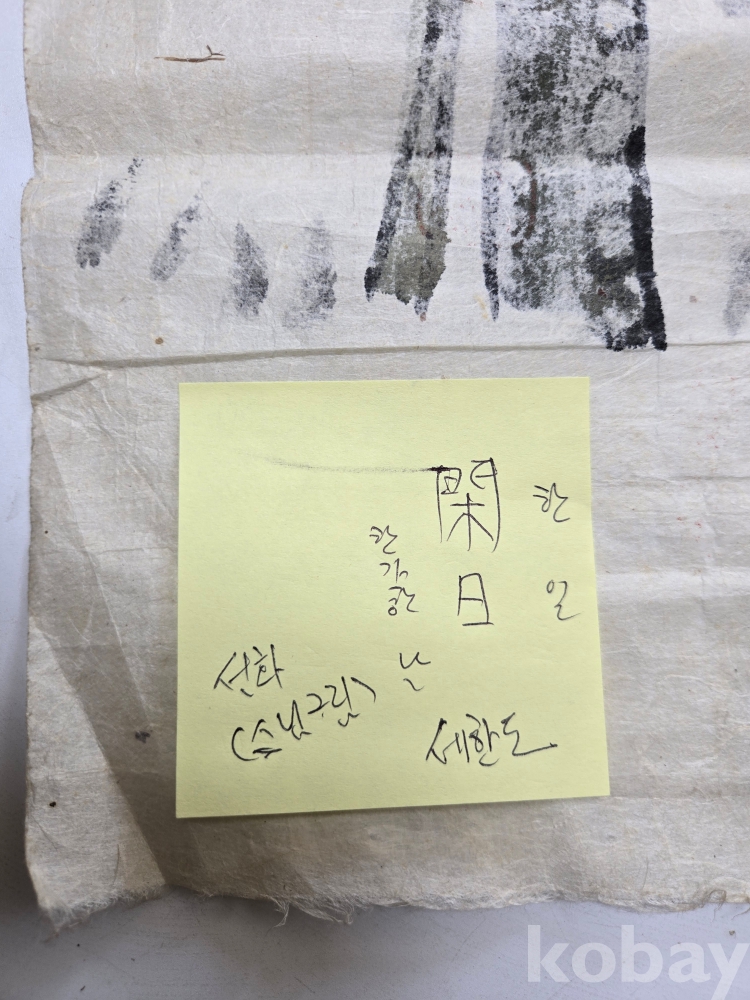 閑 한
日 일
한가한
날
선화
(스님그림)
세한도
kobay